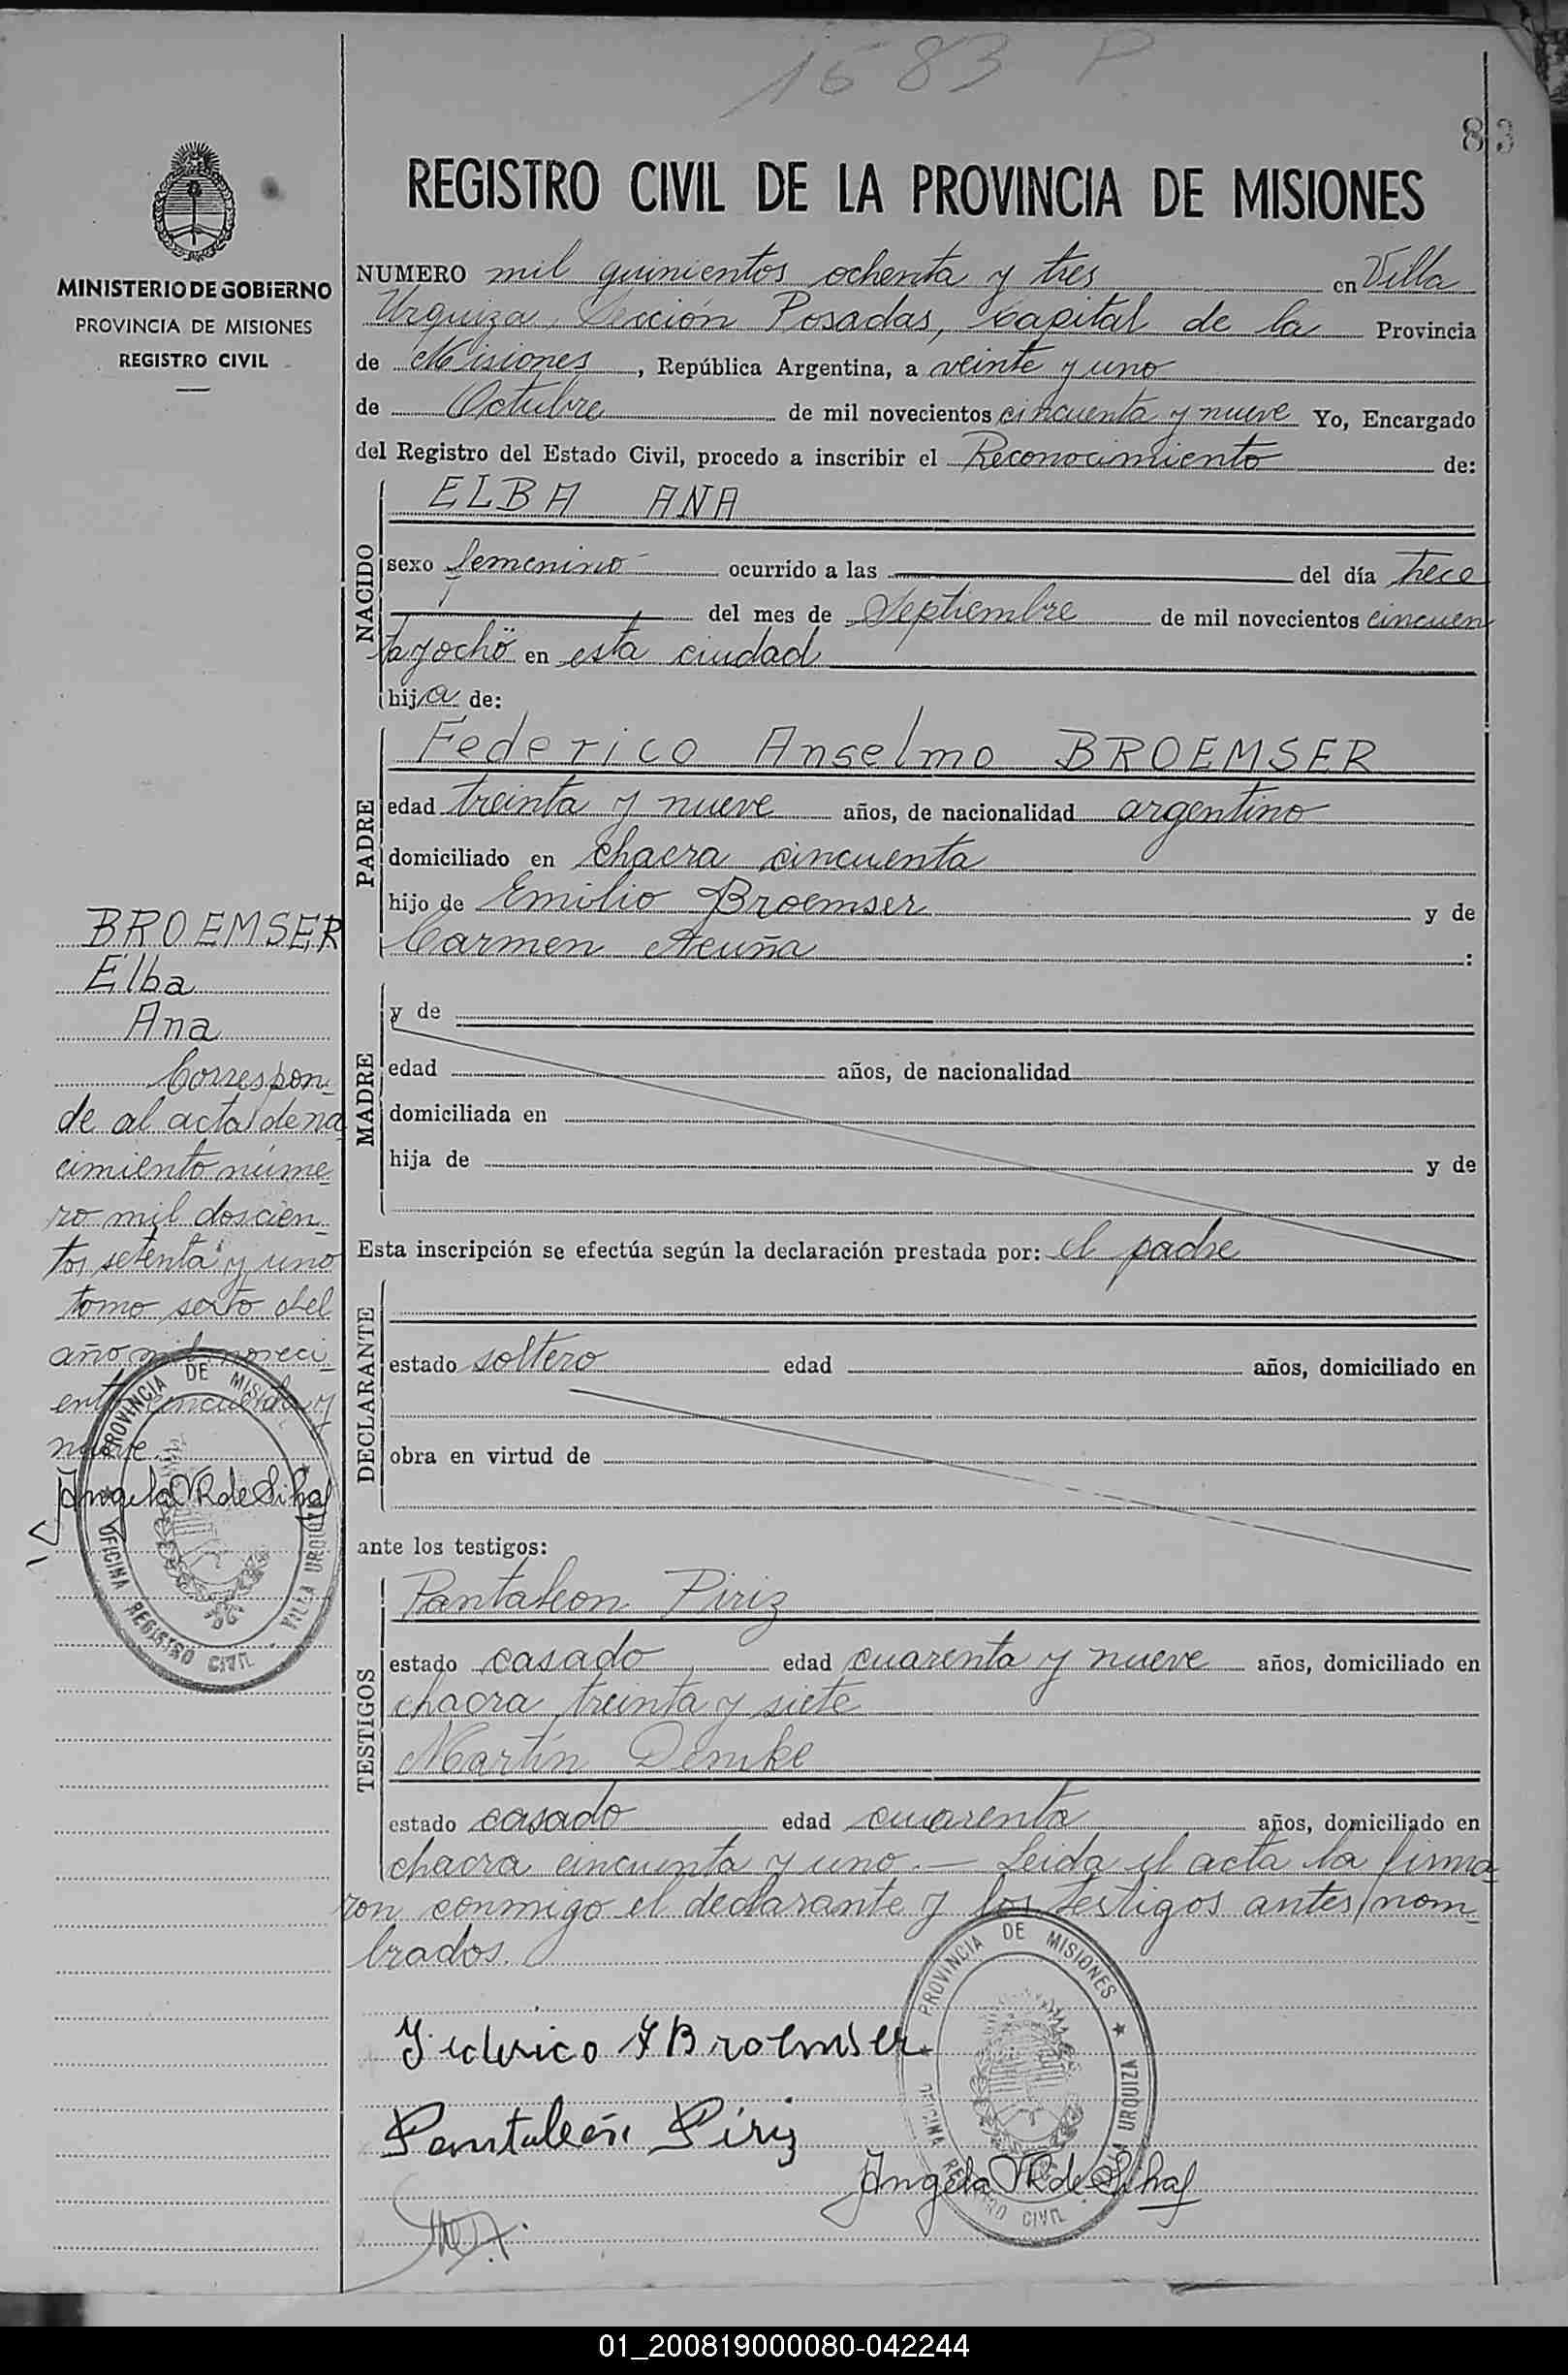 1583 P
83
MINISTERIO DE GOBIERNO
PROVINCIA DE MISIONES
REGISTRO CIVIL
BROEMSER
Elba
Ana
Correspon-
de al acta de na
cimiento núme
ro mil doscien-
tos setenta y uno
tomo sexto del
año mil noveci
entos cincuenta y
nueve.
Angela VR de Sihaf
PROVINCIA DE MISIONES
OFICINA REGISTRO CIVIL VILLA URQUIZA
REGISTRO CIVIL DE LA PROVINCIA DE MISIONES
NUMERO mil quinientos ochenta y tres en Villa
Urquiza, Sección Posadas, Capital de la Provincia
de Misiones, República Argentina, a veinte y uno
de Octubre de mil novecientos cincuenta y nueve Yo, Encargado
del Registro del Estado Civil, procedo a inscribir el Reconocimiento de:
NACIDO
ELBA ANA
sexo femenino ocurrido a las del día trece
del mes de Septiembre de mil novecientos cincuen
ta y ocho en esta ciudad
hija de:
PADRE
Federico Anselmo BROEMSER
edad treinta y nueve años, de nacionalidad argentino
domiciliado en chacra cincuenta
hijo de Emilio Broemser y de
Carmen Acuña :
MADRE
y de
edad años, de nacionalidad
domiciliada en
hija de y de
Esta inscripción se efectúa según la declaración prestada por: el padre
DECLARANTE
estado soltero edad años, domiciliado en
obra en virtud de
ante los testigos:
TESTIGOS
Pantaleon Piriz
estado casado edad cuarenta y nueve años, domiciliado en
chacra treinta y siete
Martín Demke
estado casado edad cuarenta años, domiciliado en
chacra cincuenta y uno.— Leida el acta la firma-
ron conmigo el declarante y los testigos antes nom-
brados.
Federico A Broemser
Pantaleón Piriz
Angela VR de Sihaf
PROVINCIA DE MISIONES
OFICINA REGISTRO CIVIL VILLA URQUIZA
01_200819000080-042244